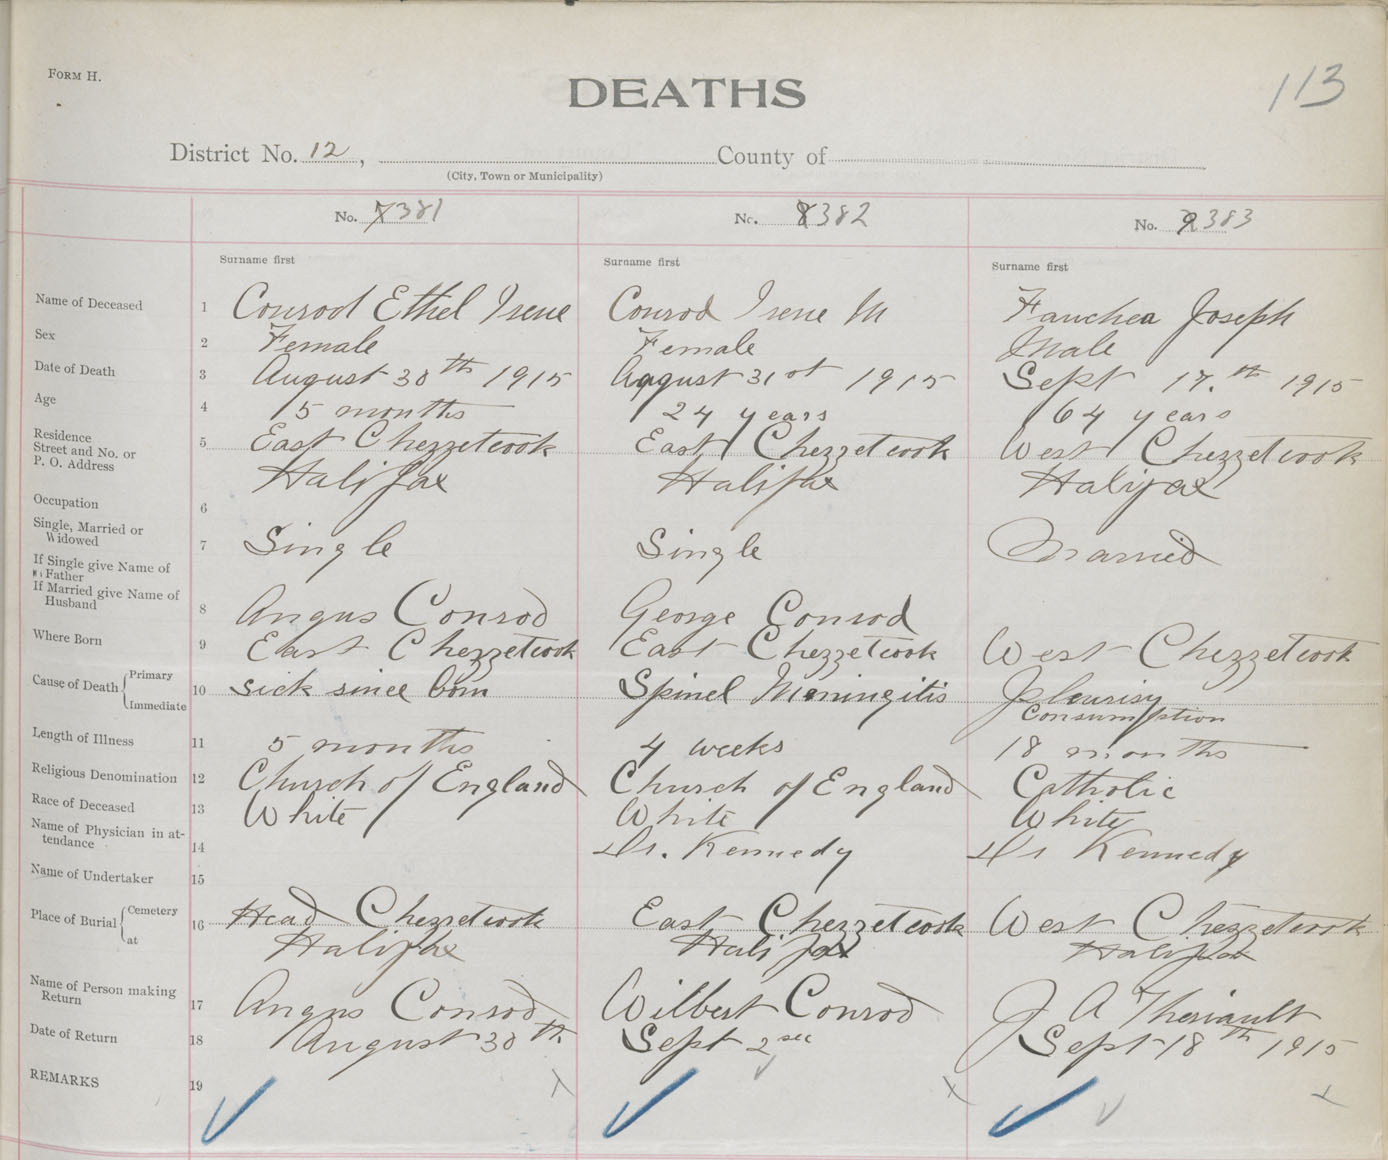 FORM H.
DEATHS
113
District No. 12, County of
(City, Town or Municipality)
No. 7381 No. 8382 No. 9383
Surname first Surname first Surname first
Name of Deceased 1 Conrod Ethel Irene Conrod Irene M Fauchea Joseph
Sex 2 Female Female Male
Date of Death 3 August 30th 1915 August 31st 1915 Sept 17.th 1915
Age 4 5 months 24 years 64 years
Residence Street and No. or P. O. Address 5 East Chezzetcook East Chezzetcook West Chezzetcook
Halifax Halifax Halifax
Occupation 6
Single, Married or Widowed 7 Single Single Married
If Single give Name of Father
If Married give Name of Husband 8 Angus Conrod George Conrod
Where Born 9 East Chezzetcook East Chezzetcook West Chezzetcook
Cause of Death { Primary Immediate 10 sick since born Spinel Meningitis Pleurisy
Consumption
Length of Illness 11 5 months 4 weeks 18 months
Religious Denomination 12 Church of England Church of England Catholic
Race of Deceased 13 White White White
Name of Physician in attendance 14 Dr. Kennedy Dr Kennedy
Name of Undertaker 15
Place of Burial { Cemetery at 16 Head Chezzetcook East Chezzetcook West Chezzetcook
Halifax Halifax Halifax
Name of Person making Return 17 Angus Conrod Wilbert Conrod J A Theriault
Date of Return 18 August 30th Sept 2sec Sept 18th 1915
REMARKS 19